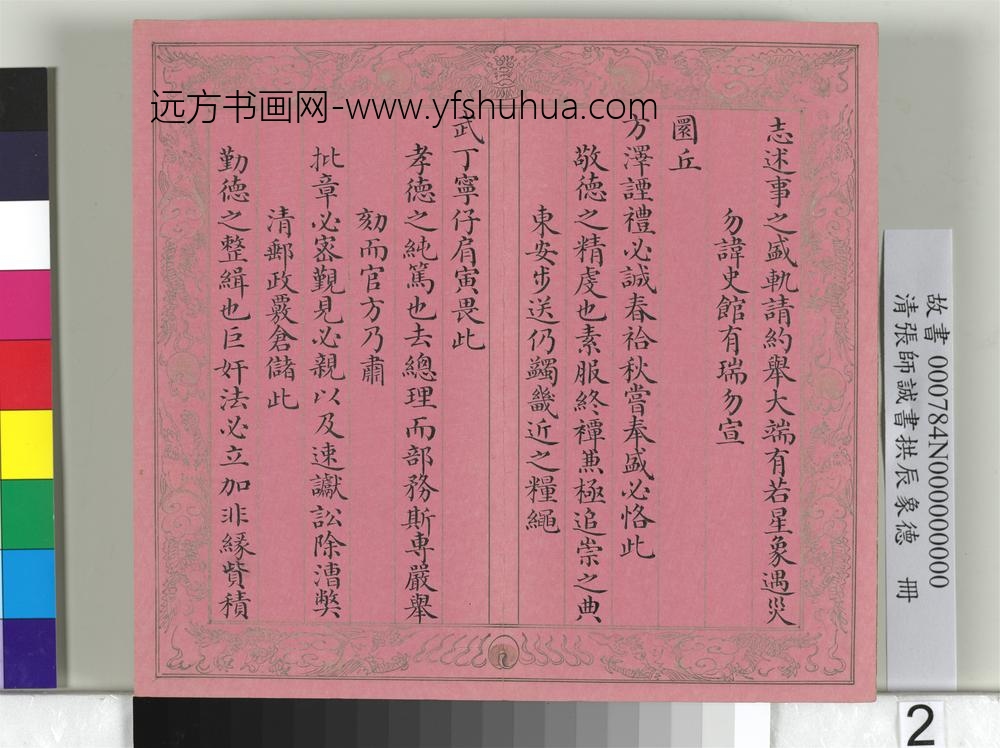 远方书画网-www.yfshuhua.com
志述事之盛軌請約舉大端有若星象遇災
勿諱史館有瑞勿宣
圜丘
方澤諲禮必誠春祫秋嘗奉盛必恪此
敬德之精虔也素服終禫惠極追崇之典
東安步送仍蠲畿近之糧繩
武丁寧仔肩寅畏此
孝德之純篤也去總理而部務斯專嚴舉
劾而官方乃肅
批章必密覲見必親以及速讞訟除漕獘
清郵政覈倉儲此
勤德之整緝也巨奸法必立加非緣貲積
故書 000784N000000000
清張師誠書拱辰象德 冊
2